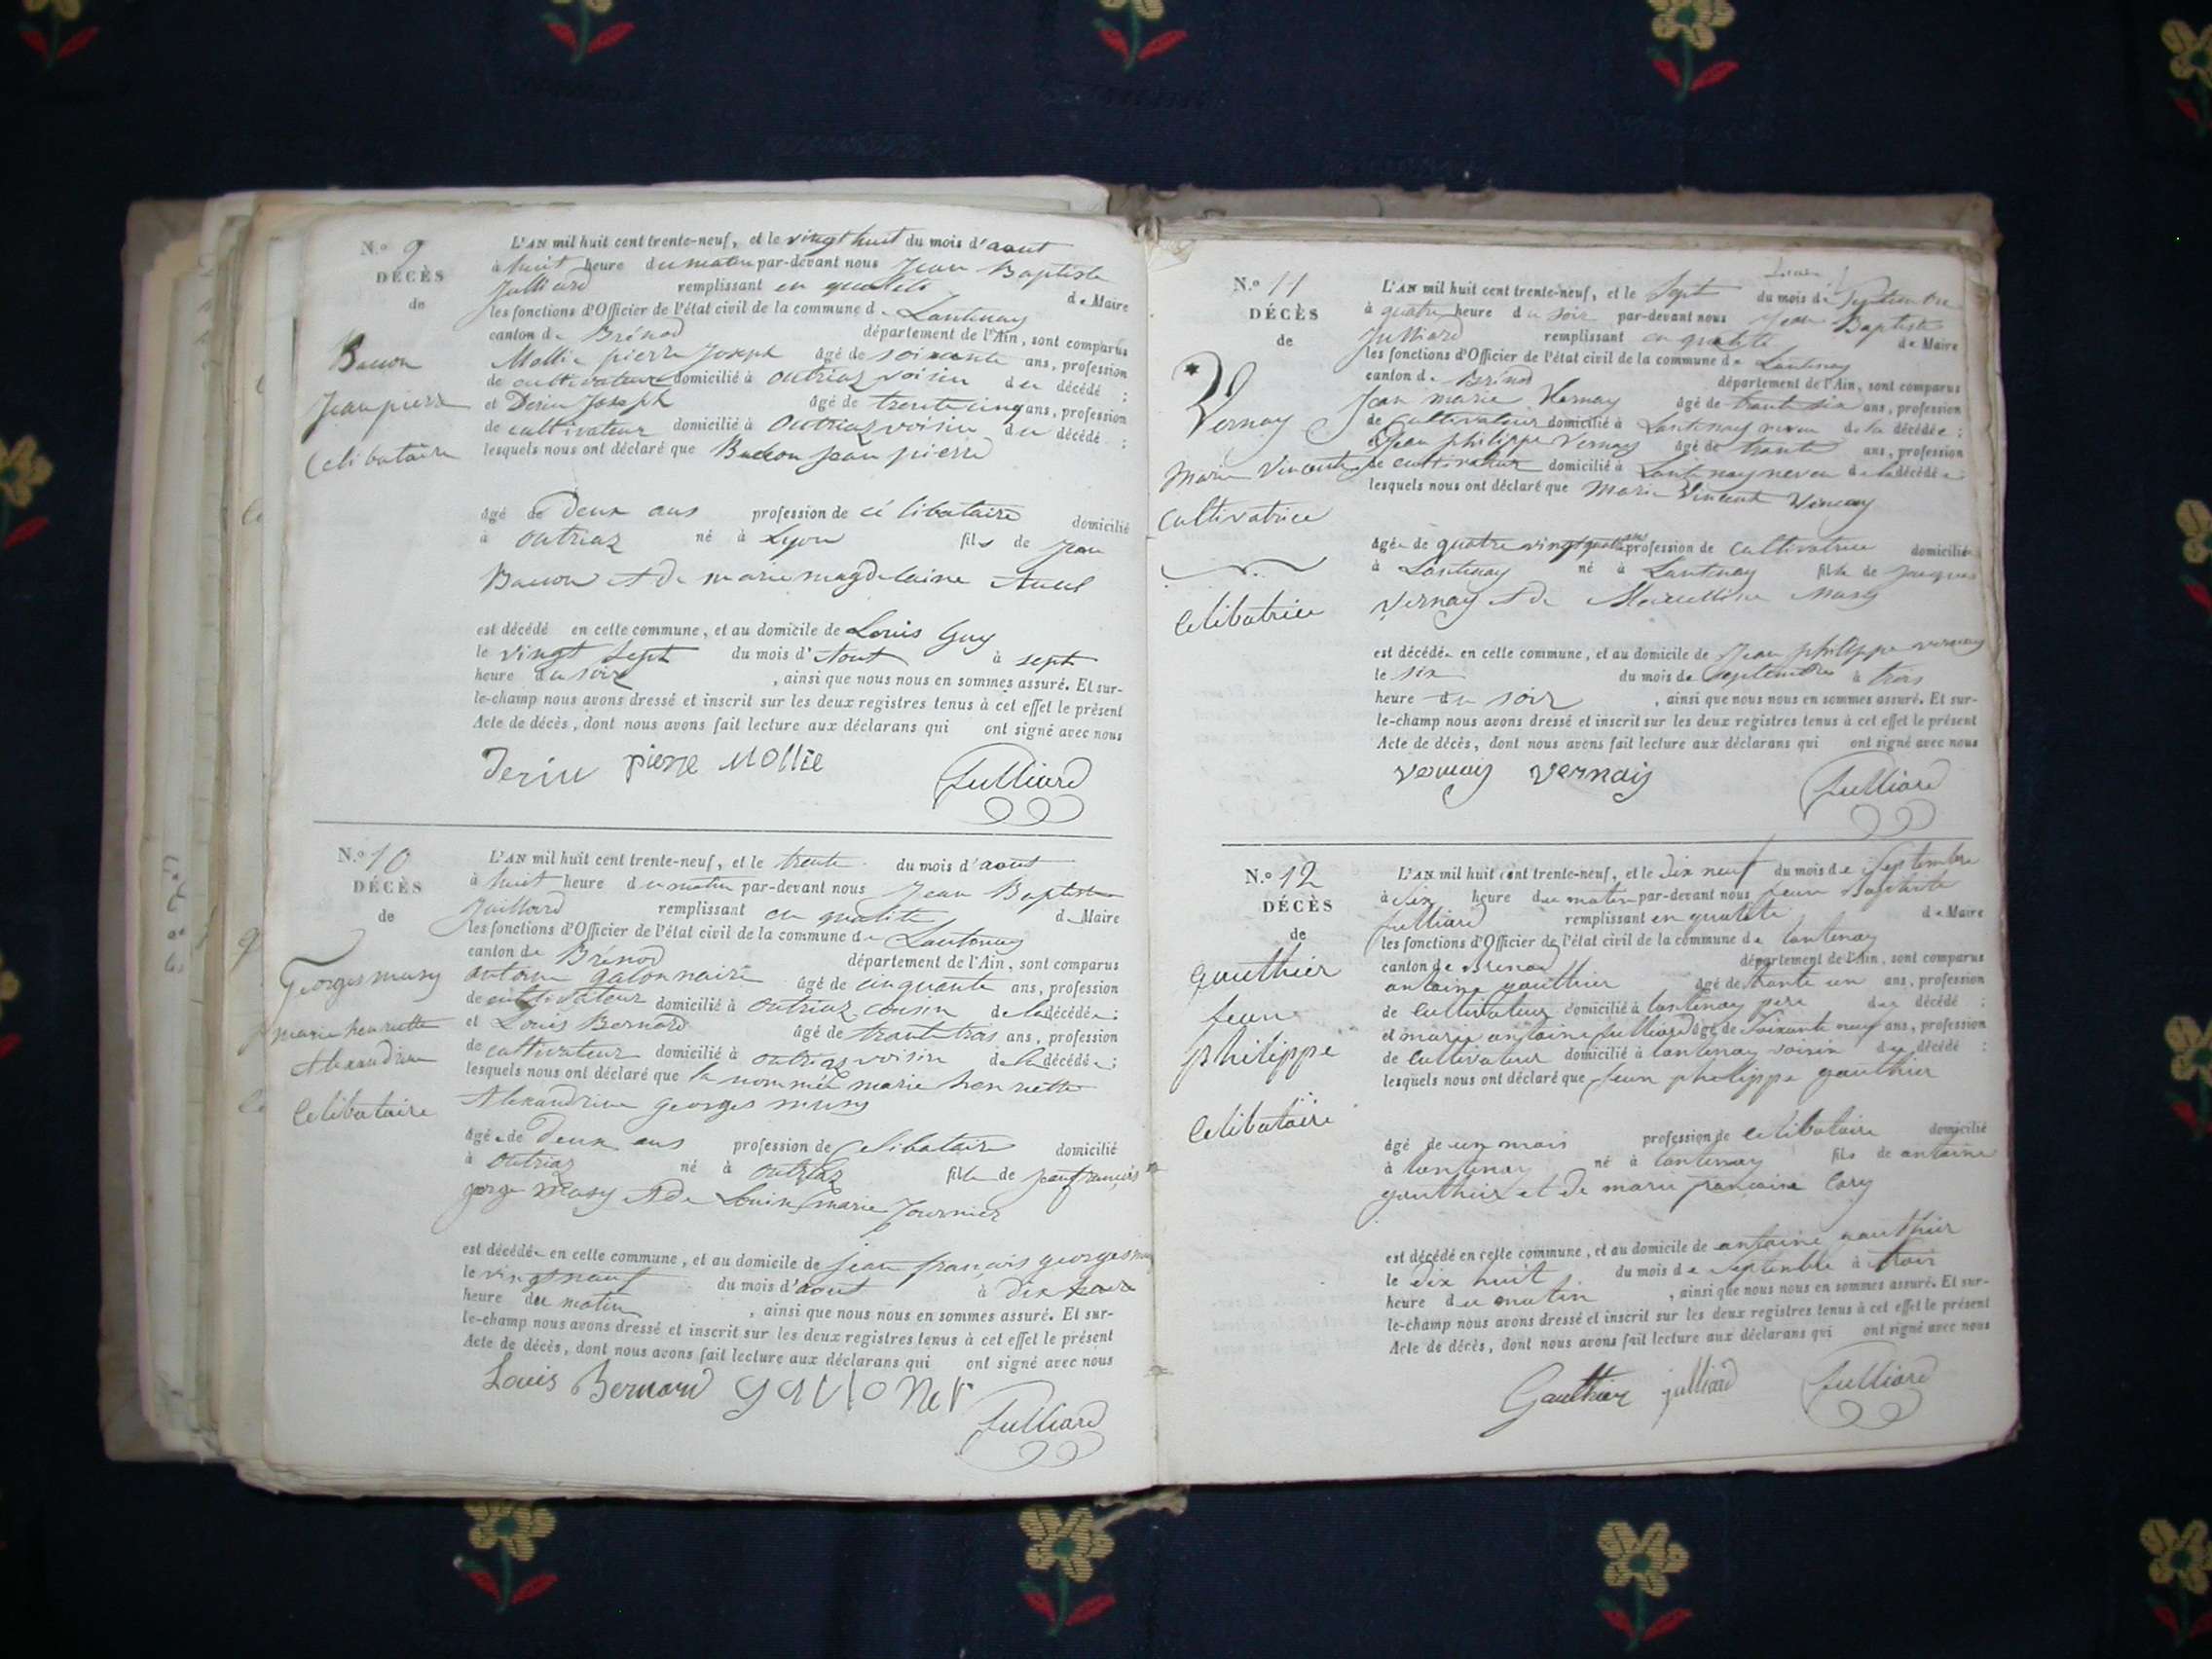 N.o 9
DÉCÈS
de
Bacon
Jean pierre
Celibataire
L'AN mil huit cent trente-neuf, et le vingt huit du mois d'aout
à huit heure du matin par-devant nous Jean Baptiste
Julliard remplissant en qualité de Maire
les fonctions d'Officier de l'état civil de la commune de Lantenay
canton de Brénod département de l'Ain, sont comparus
Mollie pierre Joseph âgé de soixante ans, profession
de cultivateur domicilié à Outriaz voisin du décédé ;
et Derin Joseph âgé de trente cinq ans, profession
de cultivateur domicilié à Outriaz voisin du décédé ;
lesquels nous ont déclaré que Bacon Jean pierre
âgé de Deux ans profession de célibataire domicilié
à Outriaz né à Lyon fils de Jean
Bacon et de marie magdelaine
est décédé en cette commune, et au domicile de Louis Guy
le vingt Sept du mois d'Aout à sept
heure du soir , ainsi que nous nous en sommes assuré. Et sur-
le-champ nous avons dressé et inscrit sur les deux registres tenus à cet effet le présent
Acte de décès, dont nous avons fait lecture aux déclarans qui ont signé avec nous
Derin pierre Mollie Julliard
N.o 10
DÉCÈS
de
Georges musy
marie henriette
Alexandrine
Celibataire
L'AN mil huit cent trente-neuf, et le trente du mois d'aout
à huit heure du matin par-devant nous Jean Baptiste
Julliard remplissant en qualité de Maire
les fonctions d'Officier de l'état civil de la commune de Lantenay
canton de Brénod département de l'Ain, sont comparus
antoine galonnaire âgé de cinquante ans, profession
de cultivateur domicilié à Outriaz voisin de la décédée ;
et Louis Bernard âgé de trente trois ans, profession
de cultivateur domicilié à outriaz voisin de la décédée ;
lesquels nous ont déclaré que la nommée marie henriette
Alexandrine georges musy
âgée de Deux ans profession de Celibataire domicilié
à Outriaz né à Outriaz fille de jean françois
george musy et de Louise marie Tournier
est décédée en cette commune, et au domicile de jean françois georges musy
le vingt neuf du mois d'aout à dix heure
heure du matin , ainsi que nous nous en sommes assuré. Et sur-
le-champ nous avons dressé et inscrit sur les deux registres tenus à cet effet le présent
Acte de décès, dont nous avons fait lecture aux déclarans qui ont signé avec nous
Louis Bernard Julliard
N.o 11
DÉCÈS
de
Vernay
Marie Vincente
Cultivatrice
Celibatrice
L'AN mil huit cent trente-neuf, et le Sept du mois de Septembre
à quatre heure du soir par-devant nous Jean Baptiste
Julliard remplissant en qualité de Maire
les fonctions d'Officier de l'état civil de la commune de Lantenay
canton de Brénod département de l'Ain, sont comparus
Jean marie Vernay âgé de trante six ans, profession
de Cultivateur domicilié à Lantenay neveu de la décédée ;
et Jean philippe Vernay âgé de trante ans, profession
de cultivateur domicilié à Lantenay neveu de la décédée
lesquels nous ont déclaré que Marie Vincent Vernay
âgée de quatre vingt quatre ans profession de Cultivatrice domicilié
à Lantenay né à Lantenay fille de Jacques
Vernay et de Marcelline Musy
est décédée en cette commune, et au domicile de Jean philippe vernay
le six du mois de septembre à trois
heure du soir , ainsi que nous nous en sommes assuré. Et sur-
le-champ nous avons dressé et inscrit sur les deux registres tenus à cet effet le présent
Acte de décès, dont nous avons fait lecture aux déclarans qui ont signé avec nous
vernay vernay Julliard
N.o 12
DÉCÈS
de
gauthier
Jean
philippe
Celibataire
L'AN mil huit cent trente-neuf, et le Dix neuf du mois de Septembre
à Six heure du matin par-devant nous Jean Baptiste
Julliard remplissant en qualité de Maire
les fonctions d'Officier de l'état civil de la commune de lantenay
canton de Brenod département de l'Ain, sont comparus
antoine gauthier âgé de trante un ans, profession
de Cultivateur domicilié à lantenay pere du décédé ;
et marie antoine julliard âgé de Soixante neuf ans, profession
de Cultivateur domicilié à lantenay voisin du décédé ;
lesquels nous ont déclaré que Jean philippe gauthier
âgé de un mois profession de Celibataire domicilié
à lantenay né à lantenay fils de antoine
gauthier et de marie françoise Cary
est décédé en cette commune, et au domicile de antoine gauthier
le Dix huit du mois de Septembre à trois
heure du matin , ainsi que nous nous en sommes assuré. Et sur-
le-champ nous avons dressé et inscrit sur les deux registres tenus à cet effet le présent
Acte de décès, dont nous avons fait lecture aux déclarans qui ont signé avec nous
Gauthier julliard Julliard